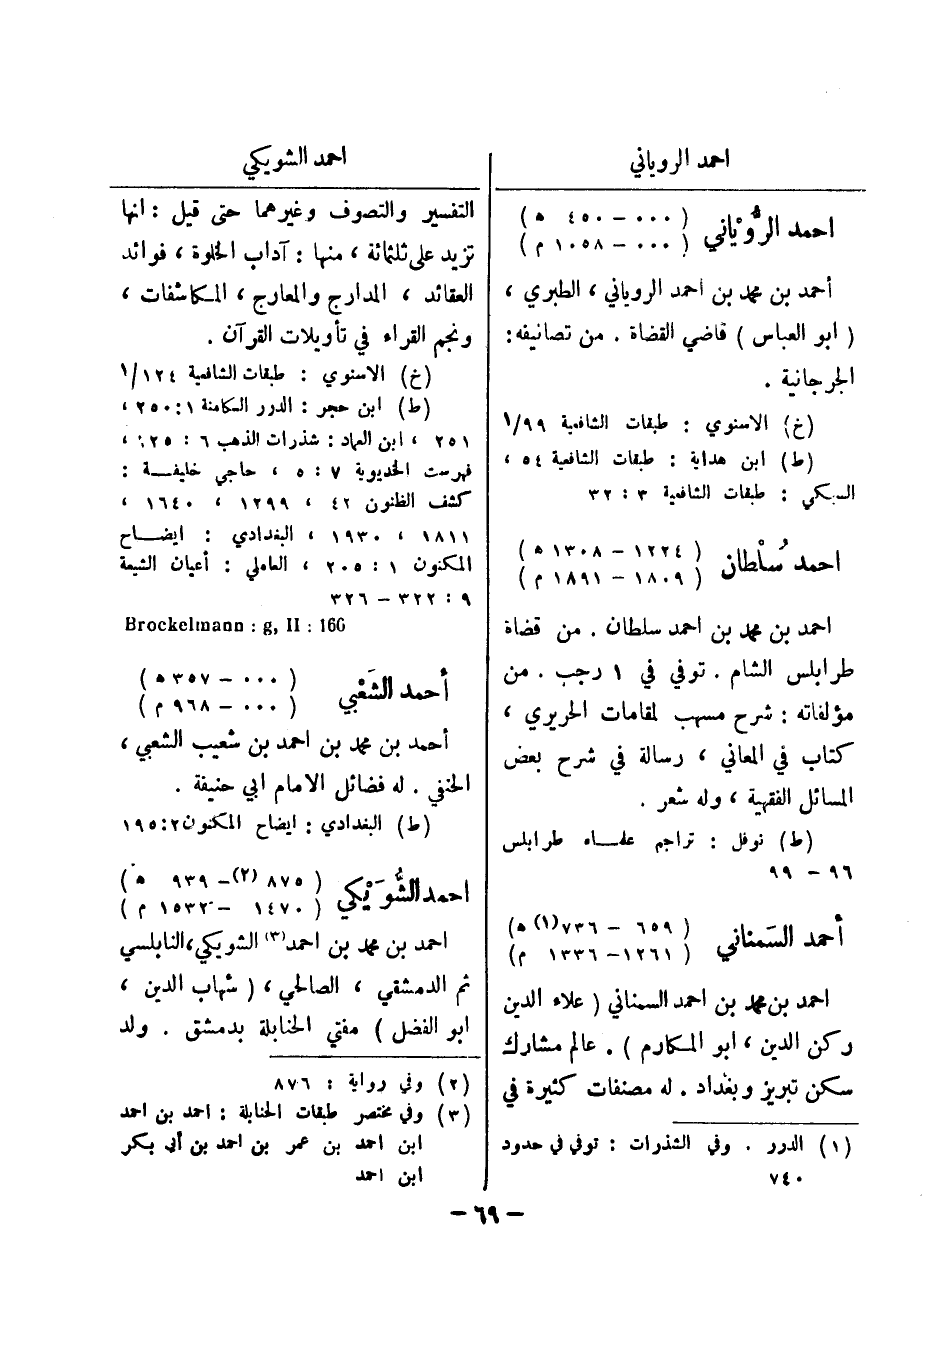 احمد الروياني
احمد الرُّوْياني
( ٠٠٠ - ٤٥٠ ه )
( ٠٠٠ - ١٠٥٨ م )
أحمد بن محمد بن احمد الروياني ، الطبري ،
( ابو العباس ) قاضي القضاة . من تصانيفه :
الجرجانية .
(خ) الاسنوي : طبقات الشافعية ١/٩٩
(ط) ابن هداية : طبقات الشافعية ٥٤ ،
السبكي : طبقات الشافعية ٣ : ٣٢
احمد سُلْطان
( ١٢٢٤ - ١٣٠٨ ه )
( ١٨٠٩ - ١٨٩١ م )
احمد بن محمد بن احمد سلطان . من قضاة
طرابلس الشام . توفي في ١ رجب . من
مؤلفاته : شرح مسهب لمقامات الحريري ،
كتاب في المعاني ، رسالة في شرح بعض
المسائل الفقهية ، وله شعر .
(ط) نوفل : تراجم علماء طرابلس
٩٦ - ٩٩
أحمد السَمناني
( ٦٥٩ - ٧٣٦(١) ه )
( ١٢٦١ - ١٣٣٦ م )
احمد بن محمد بن احمد السمناني ( علاء الدين
ركن الدين ، ابو المكارم ) . عالم مشارك
سكن تبريز وبغداد . له مصنفات كثيرة في
(١) الدرر . وفي الشذرات : توفي في حدود
٧٤٠
احمد الشويكي
التفسير والتصوف وغيرهما حتى قيل : انها
تزيد على ثلثمائة ، منها : آداب الخلوة ، فوائد
العقائد ، المدارج والمعارج ، المكاشفات ،
ونجم القراء في تأويلات القرآن .
(خ) الاسنوي : طبقات الشافعية ١/١٢٤
(ط) ابن حجر : الدرر الكامنة ١ : ٢٥٠ ،
٢٥١ ، ابن العماد : شذرات الذهب ٦ : ١٢٥ ،
فهرست الخديوية ٧ : ٥ ، حاجي خليفة :
كشف الظنون ٤٢ ، ١٢٩٩ ، ١٦٤٠ ،
١٨١١ ، ١٩٣٠ ، البغدادي : ايضاح
المكنون ١ : ٢٠٥ ، العاملي : أعيان الشيعة
٩ : ٣٢٢ - ٣٢٦
Brockelmann : g, II : 166
أحمد الشَعْبي
( ٠٠٠ - ٣٥٧ ه )
( ٠٠٠ - ٩٦٨ م )
أحمد بن محمد بن احمد بن شعيب الشعبي ،
الحنفي . له فضائل الامام ابي حنيفة .
(ط) البغدادي : ايضاح المكنون ٢ : ١٩٥
احمد الشُّوَيْكي
( ٨٧٥ (٢) - ٩٣٩ ه )
( ١٤٧٠ - ١٥٣٢ م )
احمد بن محمد بن احمد(٣) الشويكي ، النابلسي
ثم الدمشقي ، الصالحي ، ( شهاب الدين ،
ابو الفضل ) مفتي الحنابلة بدمشق . ولد
(٢) وفي رواية : ٨٧٦
(٣) وفي مختصر طبقات الحنابلة : احمد بن احمد
ابن احمد بن عمر بن احمد بن أبي بكر
ابن احمد
- ٦٩ -